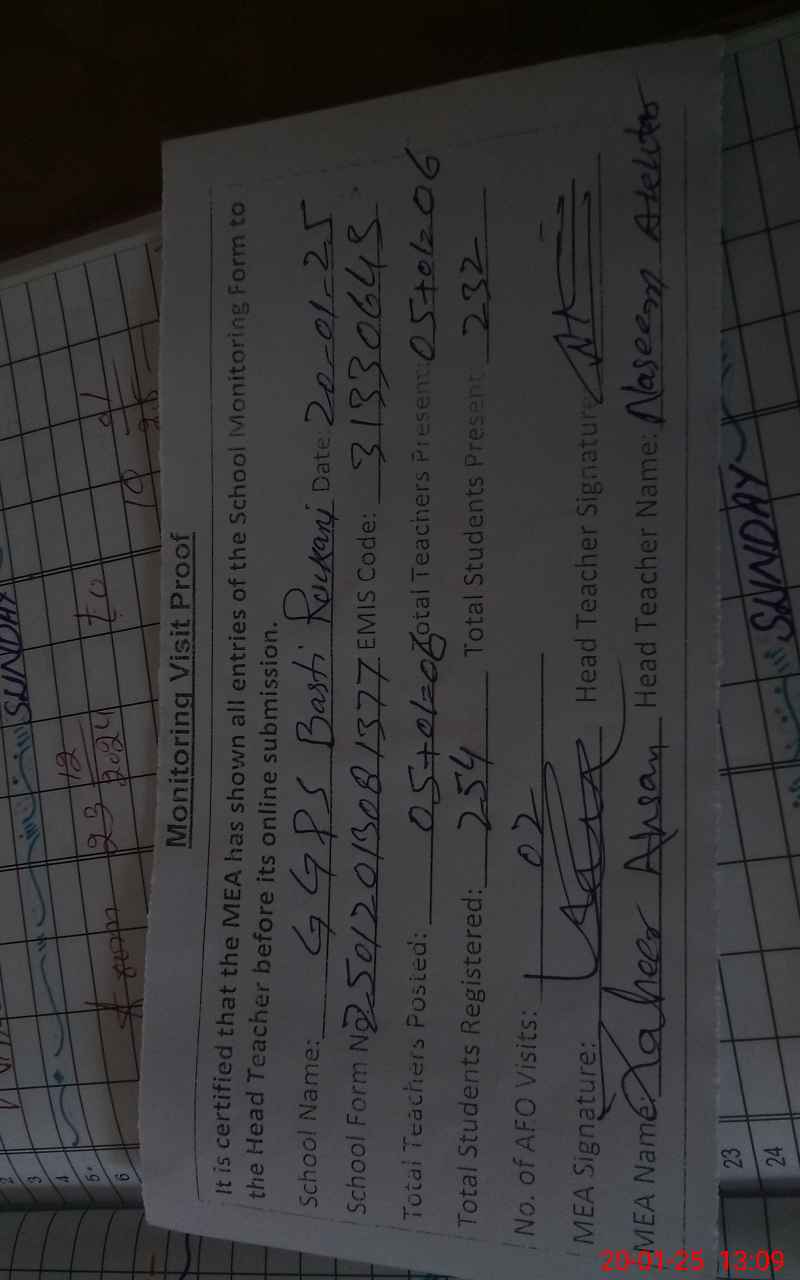 SUNDAY
23 12 2024 to 10 01 25
3
4
5.
6
Monitoring Visit Proof
It is certified that the MEA has shown all entries of the School Monitoring Form to
the Head Teacher before its online submission.
School Name: GGPS Basti Date: 20-01-25
School Form No 25012013081377 EMIS Code: 31330645
Total Teachers Posted: 05+01=06 Total Teachers Present: 05+01=06
Total Students Registered: 254 Total Students Present 232
No. of AFO Visits: 02
MEA Signature: Head Teacher Signature
MEA Name: Zaheer Ahsan Head Teacher Name: Naseem Akhtar
23
24 SUNDAY
20-01-25 13:09